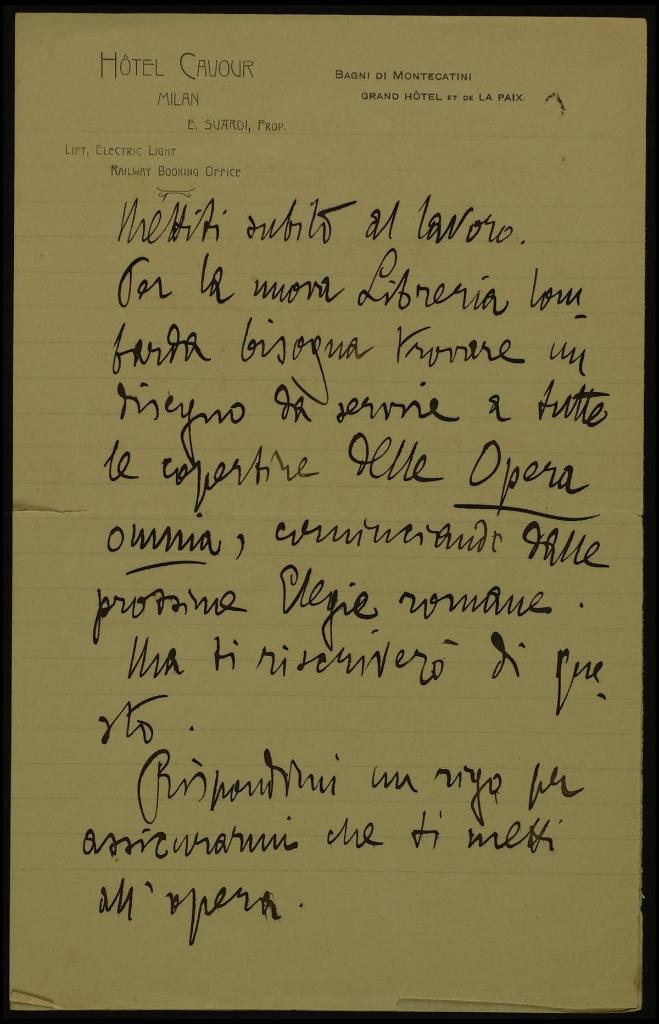 HÔTEL CAVOUR
MILAN
E. SUARDI, PROP.
LIFT, ELECTRIC LIGHT
RAILWAY BOOKING OFFICE
BAGNI DI MONTECATINI
GRAND HÔTEL ET DE LA PAIX
Mettiti subito al lavoro.
Per la nuova Libreria lom-
barda bisogna trovare un
disegno da servire a tutte
le copertine delle Opera
omnia, cominciando dalle
prossime Elegie romane.
Ma ti riscriverò di que-
sto.
Rispondimi un rigo per
assicurarmi che ti metti
all'opera.